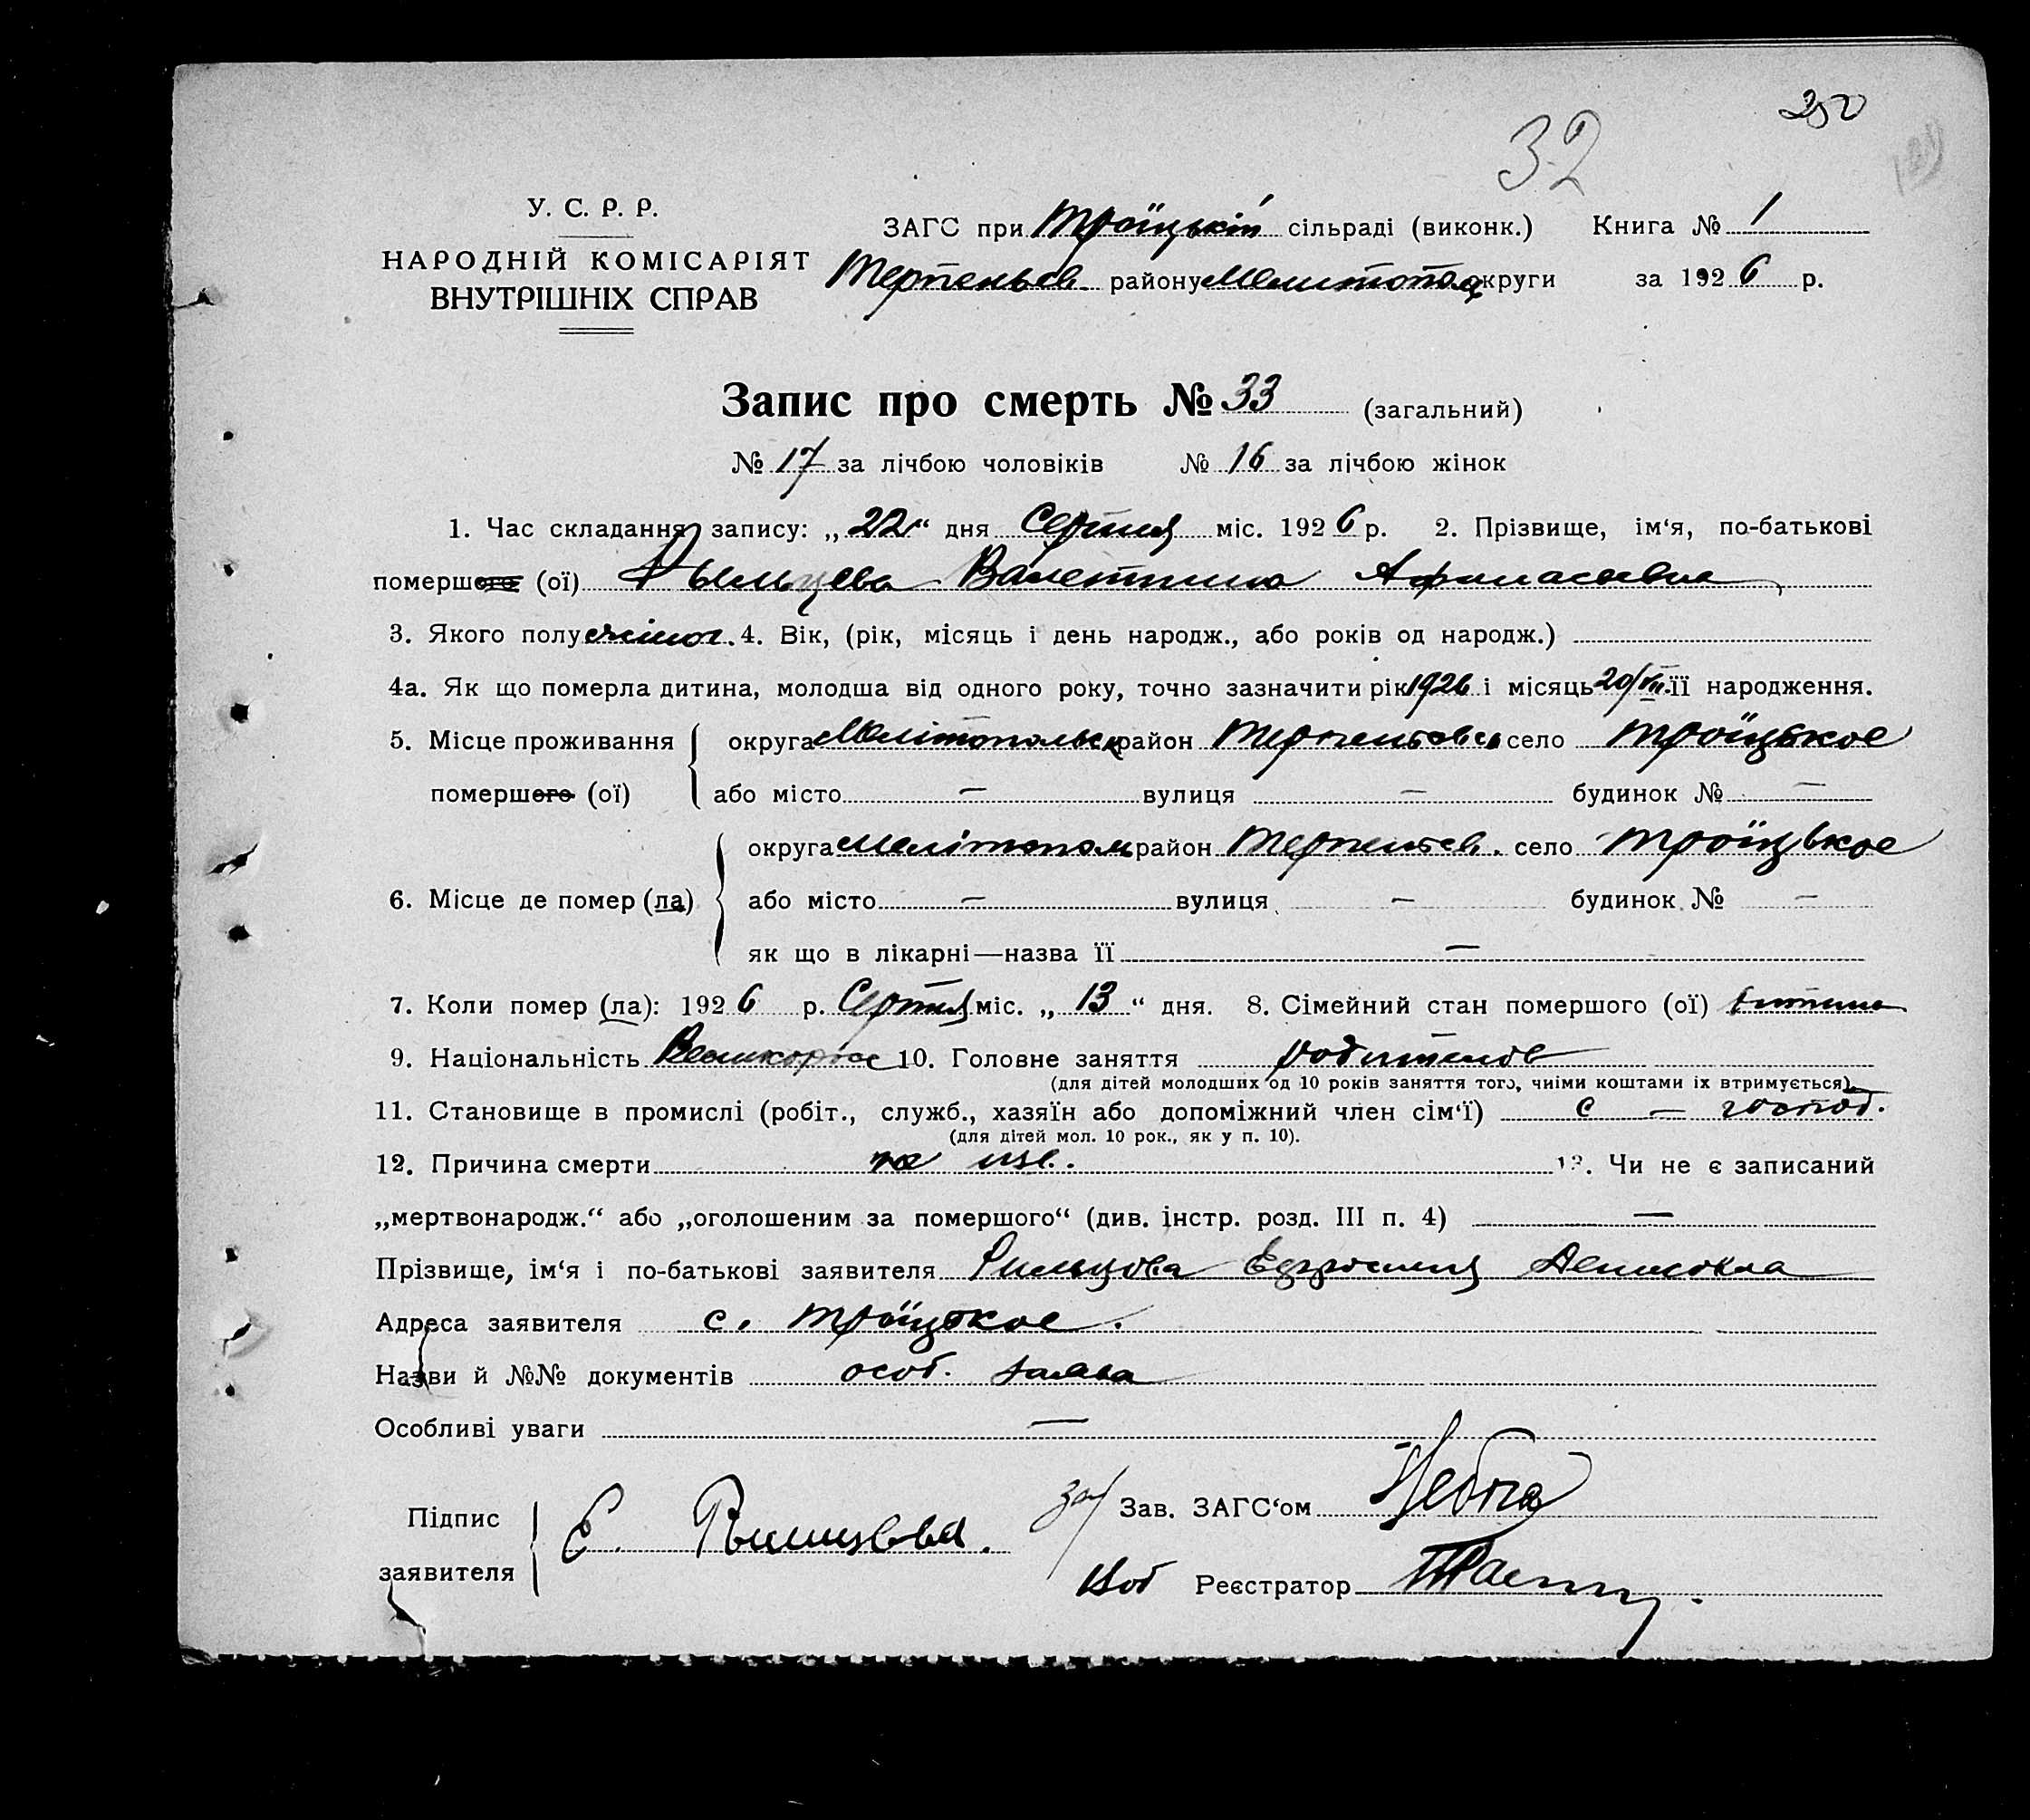 250
32
У. С. Р. Р.
НАРОДНІЙ КОМІСАРІЯТ
ВНУТРІШНІХ СПРАВ
ЗАГС при Троїцькій сільраді (виконк.) Книга № 1
Терпеньєв. району Мелитопол округи за 1926 р.
Запис про смерть № 33 (загальний)
№ 17 за лічбою чоловіків № 16 за лічбою жінок
1. Час складання запису: „22“ дня Серпня міс. 1926 р. 2. Прізвище, ім‘я, по-батькові
помершого (ої) Рыльцева Валентина Афанасьевна
3. Якого полу жіноч. 4. Вік, (рік, місяць і день народж., або років од народж.)
4а. Як що померла дитина, молодша від одного року, точно зазначити рік 1926 і місяць 20/VII її народження.
5. Місце проживання округа Мелітопольск район Терпеньєвськ село Троїцькое
помершого (ої) або місто — вулиця — будинок № —
6. Місце де помер (ла) округа Мелітопол район Терпеньєв. село Троїцькое
або місто — вулиця — будинок № —
як що в лікарні—назва її —
7. Коли помер (ла): 1926 р. Серпня міс. „13“ дня. 8. Сімейний стан помершого (ої)
9. Національність Великорос 10. Головне заняття
(для дітей молодших од 10 років заняття того, чиїми коштами їх втримується).
11. Становище в промислі (робіт., служб., хазяїн або допоміжний член сім‘ї) с — господ.
(для дітей мол. 10 рок., як у п. 10).
12. Причина смерти 13. Чи не є записаний
„мертвонародж.“ або „оголошеним за помершого“ (див. інстр. розд. III п. 4) —
Прізвище, ім‘я і по-батькові заявителя Рильцова Ефросиния Денисовна
Адреса заявителя с. Троїцкое.
Назви й №№ документів особ. заява
Особливі уваги —
Підпис заявителя Е. Рильцова. за/ Зав. ЗАГС‘ом
Реєстратор